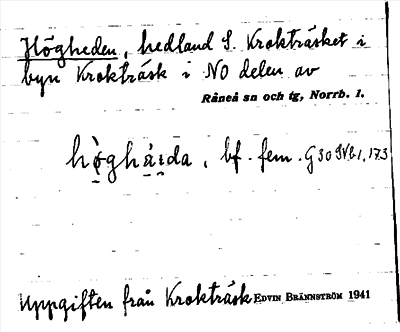 Högheden, hedland S. Krokträsket i
byn Krokträsk i NO delen av
Råneå sn och tg, Norrb. l.
bf. fem. G 30 9Vb1, 173
Uppgiften från Krokträsk EDVIN BRÄNNSTRÖM 1941